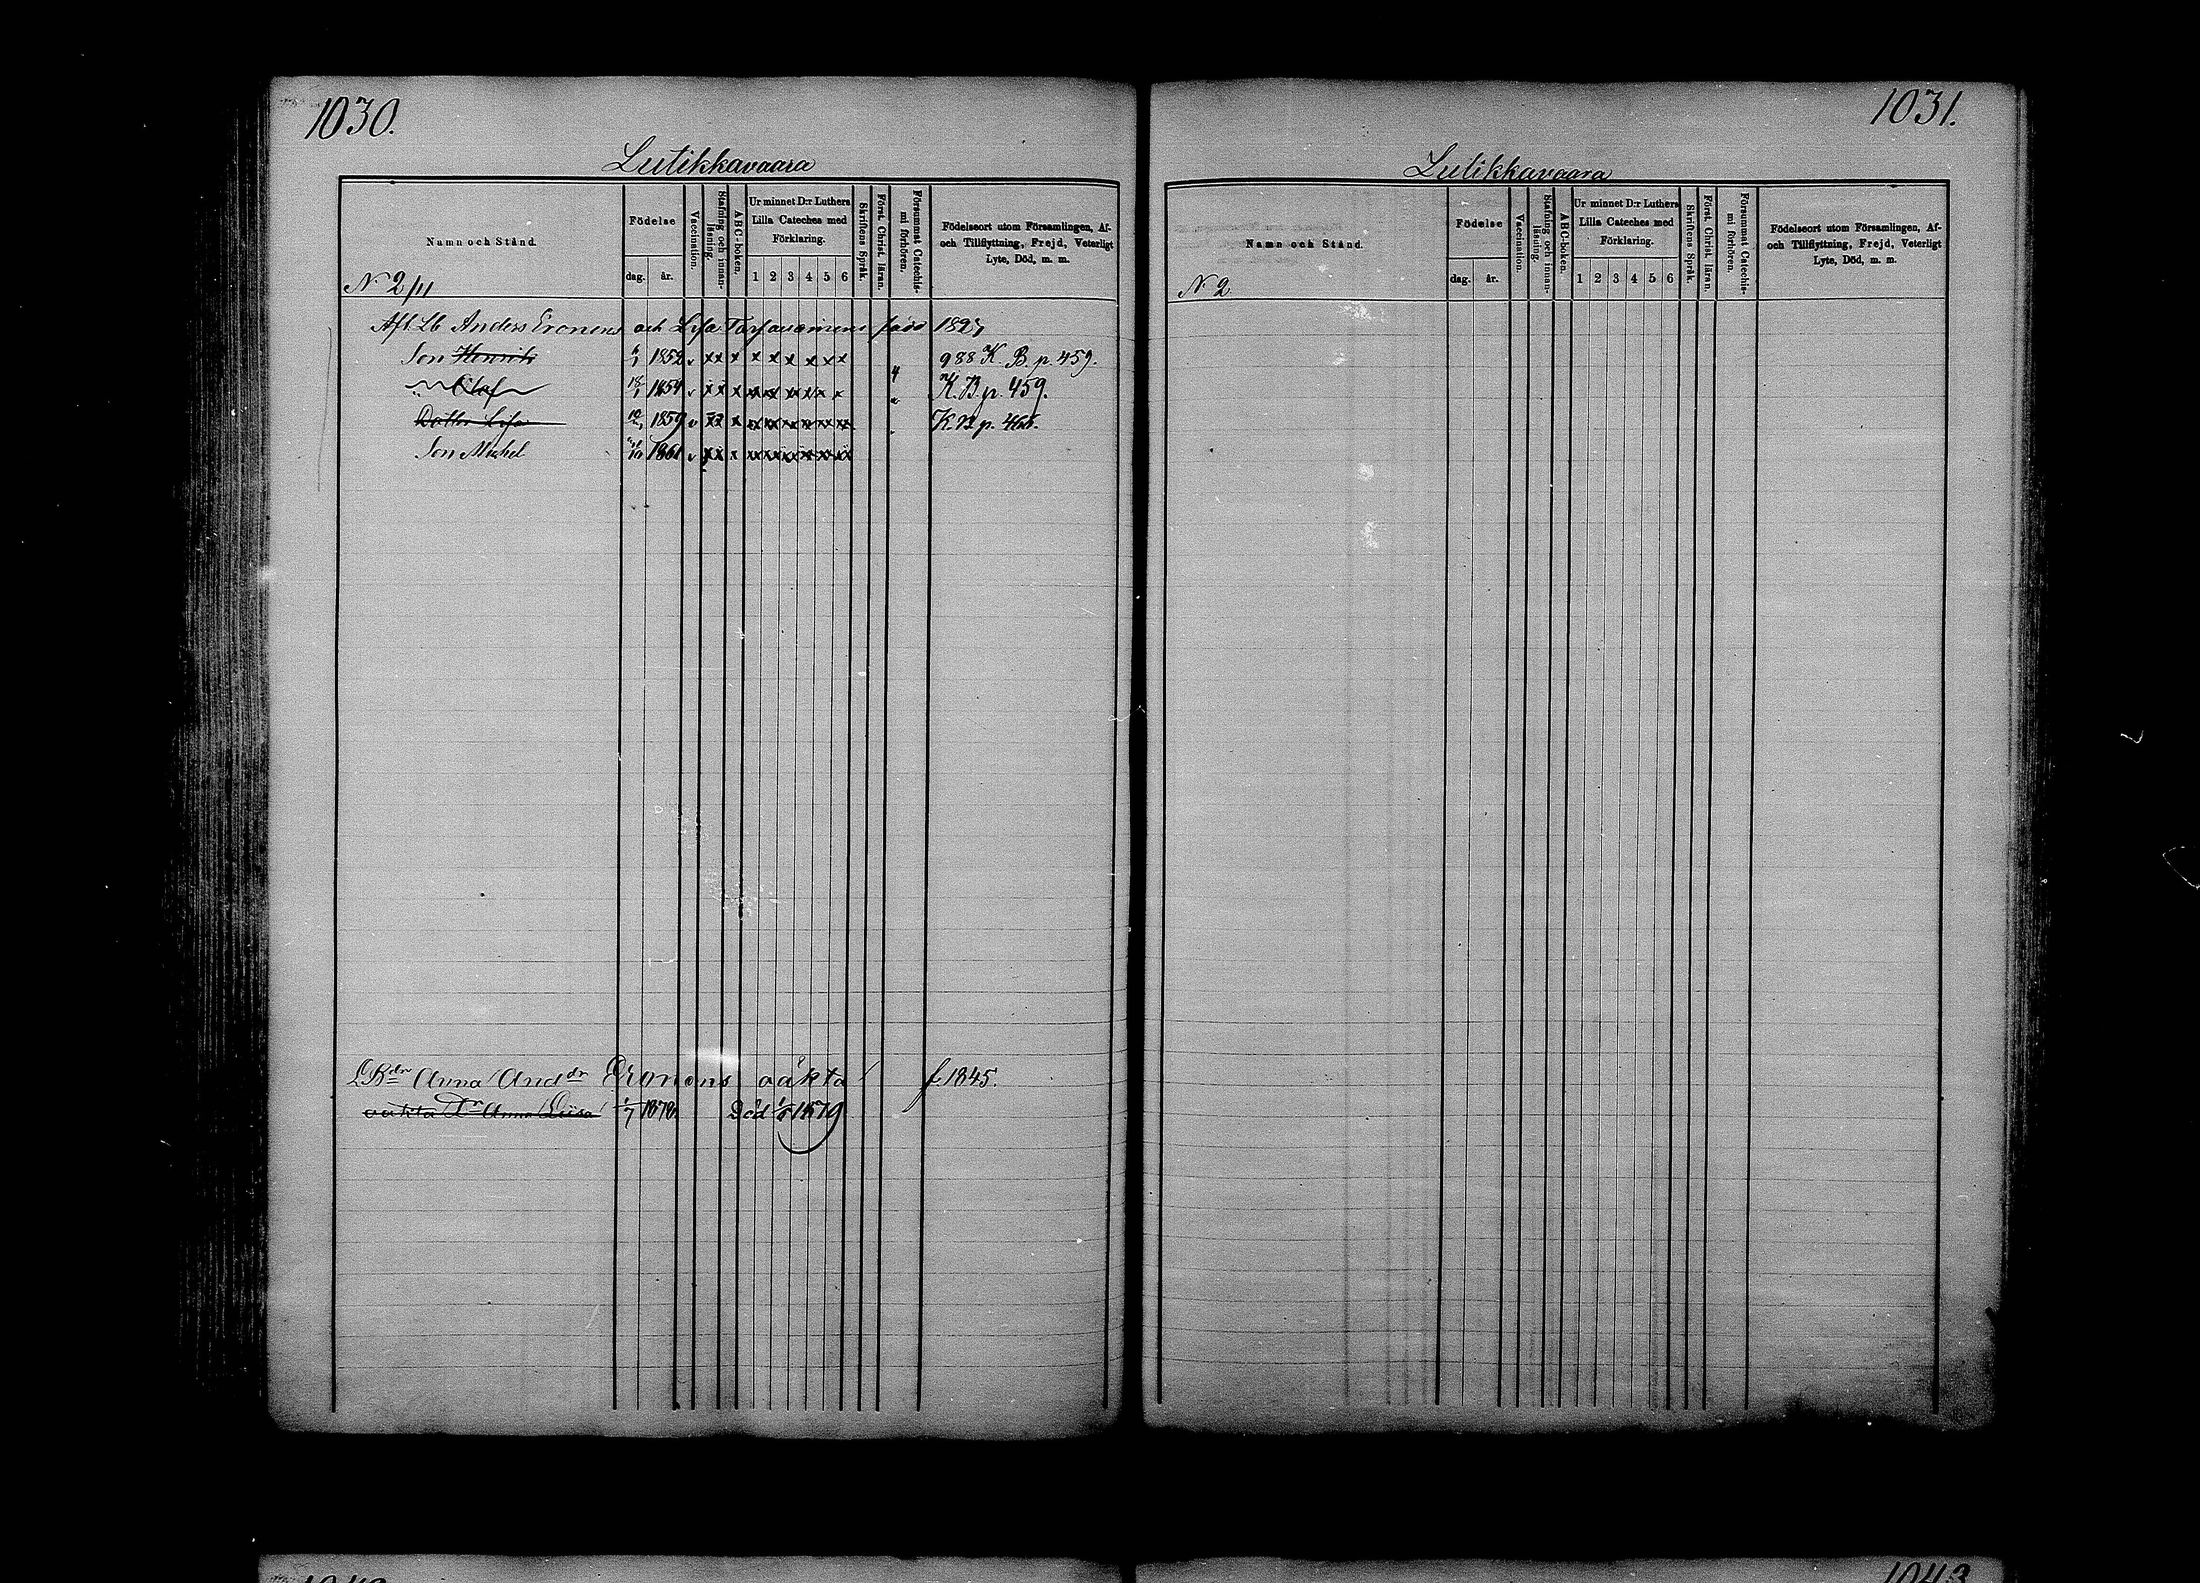 1030.
Lutikkavaara
Namn och Stånd.
Födelse
dag. år.
Vaccination.
Stafning och innanläsning.
ABC-boken.
Ur minnet D:r Luthers Lilla Cateches med Förklaring.
1 2 3 4 5 6
Skriftens Språk.
Först. Christ. lära.
Försummat Catechismi förhören.
Födelseort utom Församlingen, Af- och Tillflyttning, Frejd, Veterligt Lyte, Död, m. m.
N 2/11
Afl. Lb Anders Eronens och Lisa född 1827
Son Henrik 1852 v x x x x x x x x x 988 K. B. p. 459.
" Olof 18 1854 v x x x x x x x x x 4 K. B. p. 459.
Dotter Lisa 1859 v x x x x x x x x x " K. B p. 466.
Son Michel 1861 v x x x x x x x x x
Anna And:dr Eronens oäkta f 1845.
oäkta Dr Anna Lisa 1/7 1878 Död 1879
1031.
Lutikkavaara
Namn och Stånd.
Födelse
dag. år.
Vaccination.
Stafning och innanläsning.
ABC-boken.
Ur minnet D:r Luthers Lilla Cateches med Förklaring.
1 2 3 4 5 6
Skriftens Språk.
Först. Christ. lära.
Försummat Catechismi förhören.
Födelseort utom Församlingen, Af- och Tillflyttning, Frejd, Veterligt Lyte, Död, m. m.
N 2
1043